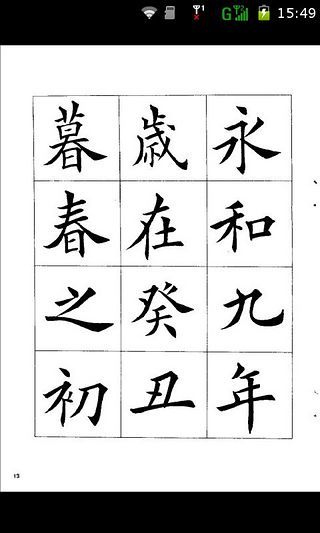 15:49
永和九年
歳在癸丑
暮春之初
13